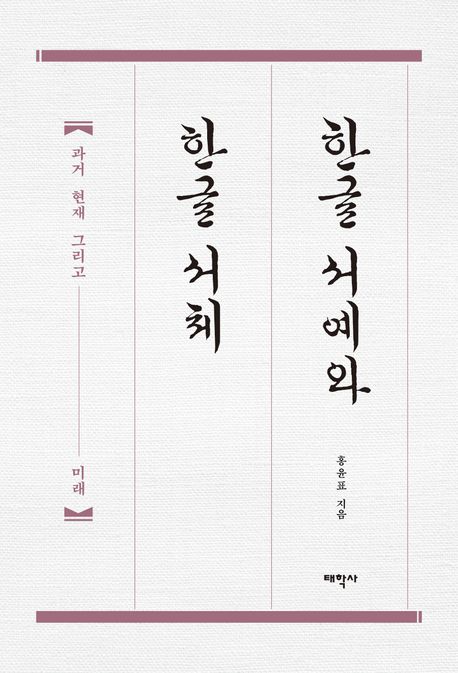 한글 서예와
한글 서체
과거 현재 그리고
미래
홍윤표 지음
태학사